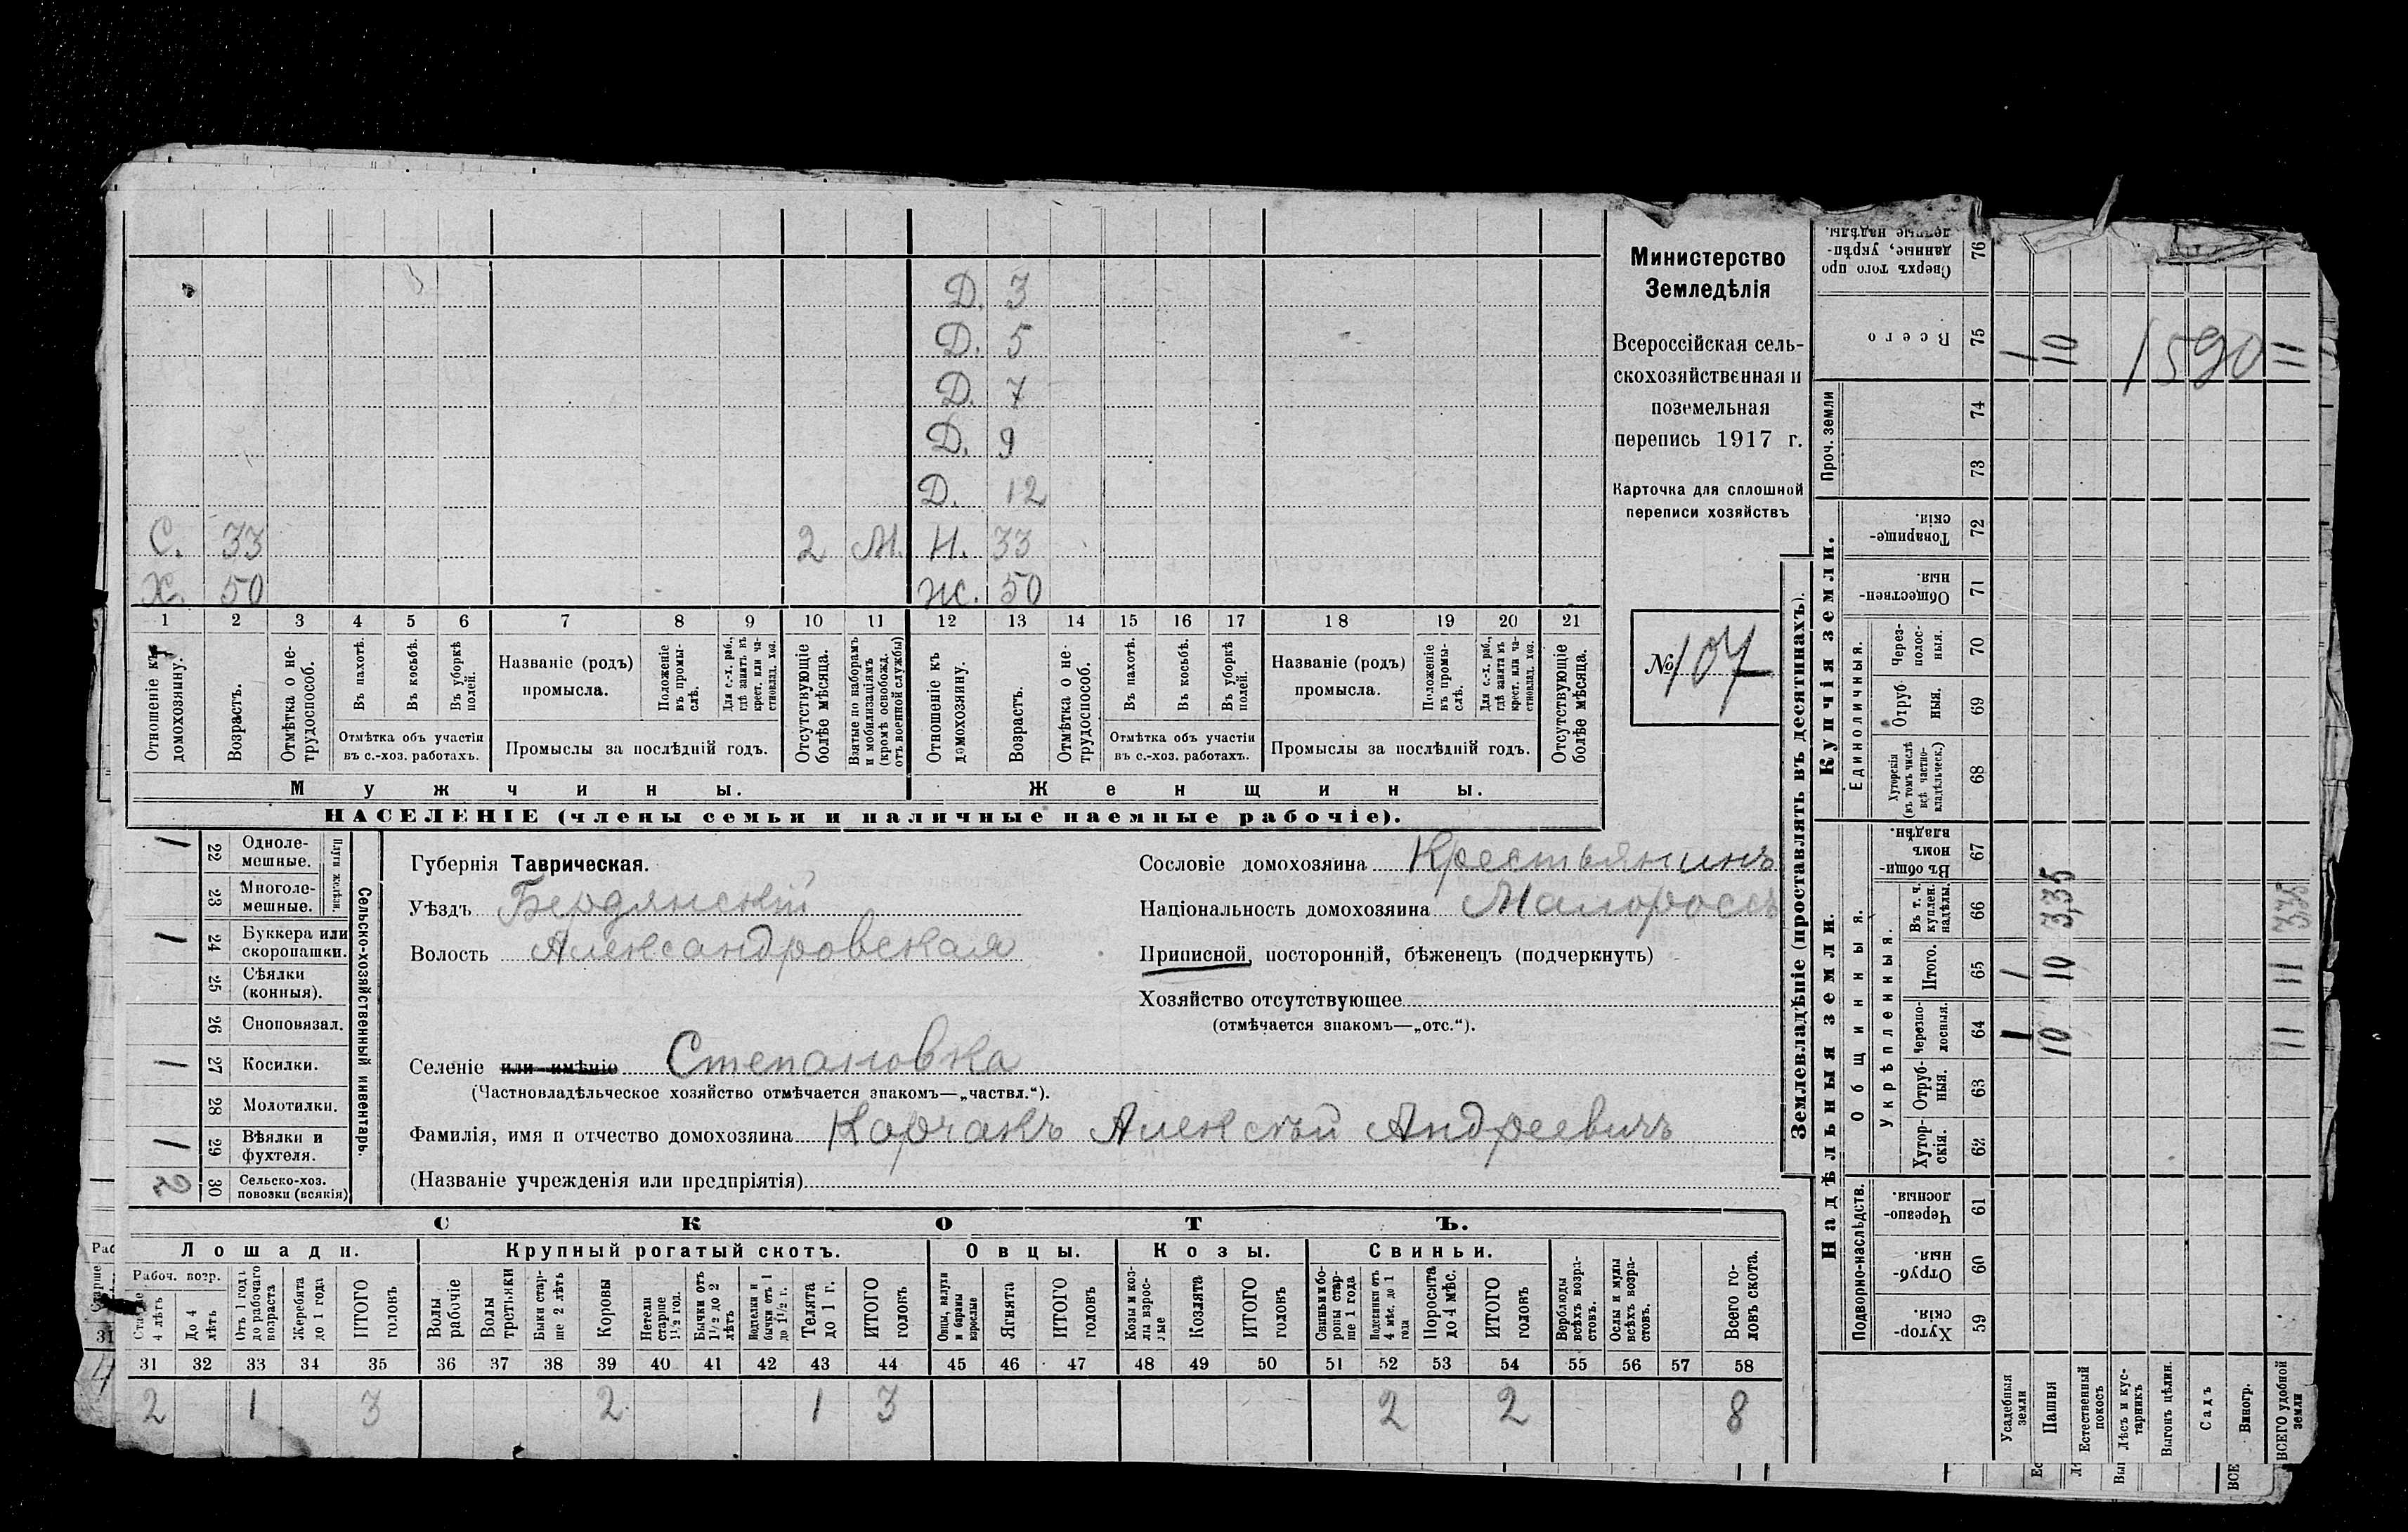 Д. 3
Д. 5
Д. 7
Д. 9
Д. 12
С. 33 2 М. Н. 33
Х. 50 Ж. 50
1 2 3 4 5 6 7 8 9 10 11 12 13 14 15 16 17 18 19 20 21
Отношеніе къ домохозяину.
Возрастъ.
Отмѣтка о нетрудоспособ.
Въ пахотѣ.
Въ косьбѣ.
Въ уборкѣ полей.
Отмѣтка объ участіи
въ с.-хоз. работахъ.
Названіе (родъ)
промысла.
Положеніе въ промыслѣ.
Для с.-х. раб., гдѣ занятъ въ крест. или частновлад. хоз.
Промыслы за послѣдній годъ.
Отсутствующіе болѣе мѣсяца.
Взятые по наборамъ и мобилизаціямъ (кромѣ освобожд. отъ военной службы)
Отношеніе къ домохозяину.
Возрастъ.
Отмѣтка о нетрудоспособ.
Въ пахотѣ.
Въ косьбѣ.
Въ уборкѣ полей.
Отмѣтка объ участіи
въ с.-хоз. работахъ.
Названіе (родъ)
промысла.
Положеніе въ промыслѣ.
Для с.-х. раб., гдѣ занята въ крест. или частновлад. хоз.
Промыслы за послѣдній годъ.
Отсутствующіе болѣе мѣсяца.
Мужчины. Женщины.
НАСЕЛЕНІЕ (члены семьи и наличные наемные рабочіе).
Министерство
Земледѣлія
Всероссійская сель-
скохозяйственная и
поземельная
перепись 1917 г.
Карточка для сплошной
переписи хозяйствъ
№ 107
Сельско-хозяйственный инвентарь.
Плуги желѣзн.
1 22 Однолемешные.
23 Многолемешные.
1 24 Буккера или скоропашки.
25 Сѣялки (конныя).
26 Сноповязал.
1 27 Косилки.
28 Молотилки.
1 29 Вѣялки и фухтеля.
2 30 Сельско-хоз. повозки (всякія)
Губернія Таврическая.
Уѣздъ Бердянскій
Волость Александровская
Сословіе домохозяина Крестьянинъ
Національность домохозяина Малороссъ
Приписной, посторонній, бѣженецъ (подчеркнуть)
Хозяйство отсутствующее
(отмѣчается знакомъ—„отс.“).
Селеніе или имѣніе Степановка
(Частновладѣльческое хозяйство отмѣчается знакомъ—„частвл.“).
Фамилія, имя и отчество домохозяина Корчакъ Алексѣй Андреевичъ
(Названіе учрежденія или предпріятія)
СКОТЪ.
Лошади. Крупный рогатый скотъ. Овцы. Козы. Свиньи.
Рабоч. возр.
Старше 4 лѣтъ
До 4 лѣтъ
Отъ 1 года до рабочаго возраста
Жеребята до 1 года
ИТОГО головъ
Волы рабочіе
Волы третьяки
Быки старше 2 лѣтъ
Коровы
Нетели старше 1½ год.
Бычки отъ 1½ до 2 лѣтъ
Нетелки и бычки отъ 1 до 1½ г.
Телята до 1 г.
ИТОГО головъ
Овцы, валухи и бараны взрослые
Ягнята
ИТОГО головъ
Козы и козлы взрослые
Козлята
ИТОГО головъ
Свиньи и боровы старше 1 года
Подсвинки отъ 4 мѣс. до 1 года
Поросята до 4 мѣс.
ИТОГО головъ
Верблюды всѣхъ возрастовъ.
Ослы и мулы всѣхъ возрастовъ.
Всего головъ скота.
31 32 33 34 35 36 37 38 39 40 41 42 43 44 45 46 47 48 49 50 51 52 53 54 55 56 57 58
2 1 3 2 1 3 2 2 8
Землевладѣніе (проставлять въ десятинахъ).
Сверхъ того проданные, укрѣпленные надѣлы. 76
Всего 75 1 10 1590 11
Проч. земли 74
73
Купчія земли.
Товарищескія. 72
Общественныя. 71
Единоличныя.
Черезполосныя. 70
Отрубныя. 69
Хуторскія (въ томъ числѣ всѣ частновладѣльческ.) 68
Надѣльныя земли.
Общинныя.
Въ общинномъ владѣн. 67
Укрѣпленныя.
Въ т. ч. куплен. надѣлы. 66 3,35 3,35
Итого. 65 1 10 11
Черезполосныя. 64 1 10 11
Отрубныя. 63
Хуторскія. 62
Подворно-наслѣдств.
Черезполосныя. 61
Отрубныя. 60
Хуторскія. 59
Усадебныя земли
Пашня
Естественный покосъ
Лѣсъ и кустарникъ
Выгонъ цѣлин.
Садъ
Виногр.
ВСЕГО удобной земли